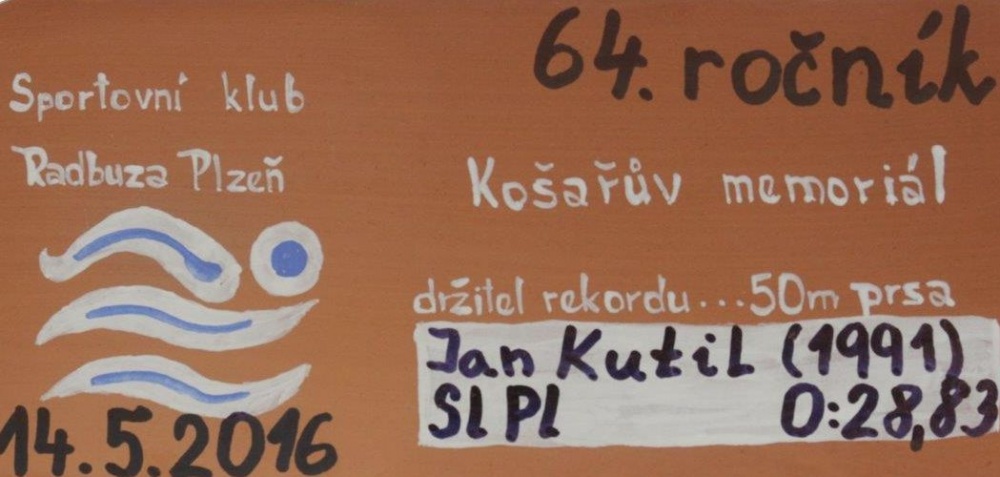 64. ročník
Sportovní klub
Radbuza Plzeň
Košařův memoriál
držitel rekordu...50m prsa
Jan Kutil (1991)
SlPl 0:28,83
14.5.2016